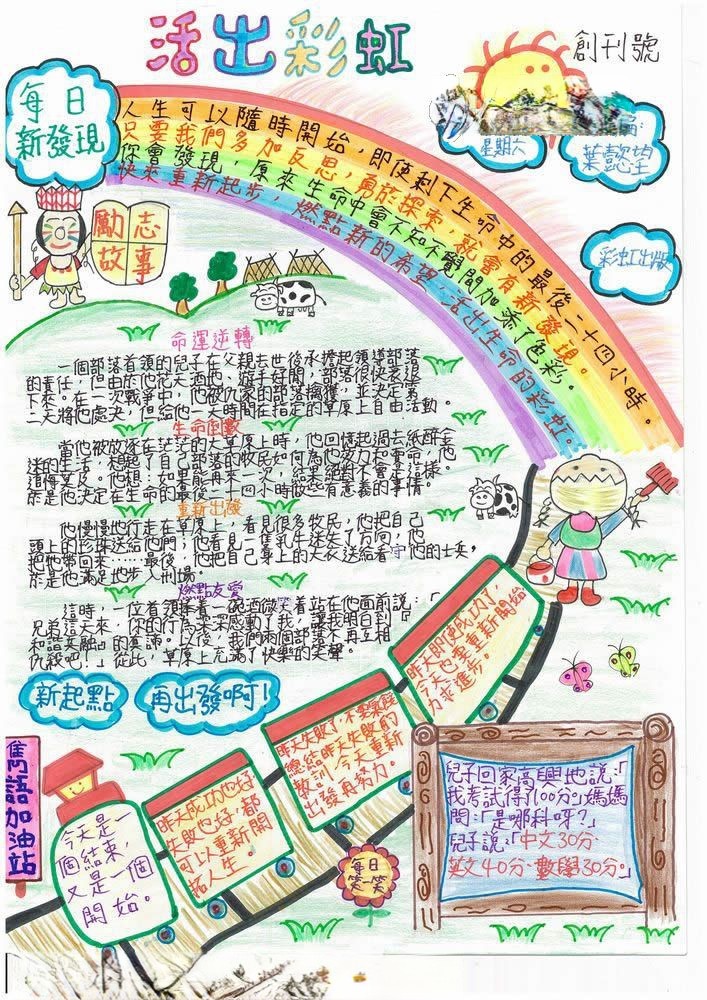 活出彩虹
創刊號
每日
新發現
人生可以隨時開始，即使剩下生命中的最後二十四小時。
只要我們多加反思，勇於探索，就會有新發現。
你會發現，原來生命中會不知不覺間加添了色彩。
快來重新起步，燃點新的希望，活出生命的彩虹。
星期六
葉懿望
彩虹出版
勵志
故事
命運逆轉
一個部落首領的兒子在父親去世後承擔起領導部落
的責任，但由於他花天酒地、遊手好閒，部落很快衰退
下來。在一次戰爭中，他被仇家的部落擒獲，並決定第
二天將他處決，但給他一天時間在指定的草原上自由活動。
生命倒數
當他被放逐在茫茫的大草原上時，他回憶起過去紙醉金
迷的生活，想起了自己部落的牧民如何為他效力和賣命，他
追悔莫及。他想：如果能再來一次，結果絕對不會是這樣。
於是他決定在生命的最後二十四小時做些有意義的事情。
重新出發
他慢慢地行走在草原上，看見很多牧民，他把自己
頭上的珍珠送給他們；他看見一隻乳牛迷失了方向，他
把牠帶回來……最後，他把自己身上的大衣送給看守他的士兵，
於是他滿足地步入刑場。
燃點友愛
這時，一位首領捧着一碗酒微笑着站在他面前說：「
兄弟這天來，你的行為深深感動了我，讓我明白到『
和諧交融』的真諦。以後，我們兩個部落不再互相
仇殺吧！」從此，草原上充滿了快樂的笑聲。
新起點
再出發啊！
雋語加油站
今天是一
個結束，
又是一個
開始。
昨天成功也好，
失敗也好，都
可以重新開
拓人生。
昨天失敗了，不要氣餒
總結昨天失敗的
教訓，今天重新
出發再努力。
昨天即使成功了，
今天也要重新開始
力求進步。
每日
笑一笑
兒子回家高興地說：「
我考試得了100分。」媽媽
問：「是哪科呀？」
兒子說：「中文30分、
英文40分、數學30分。」